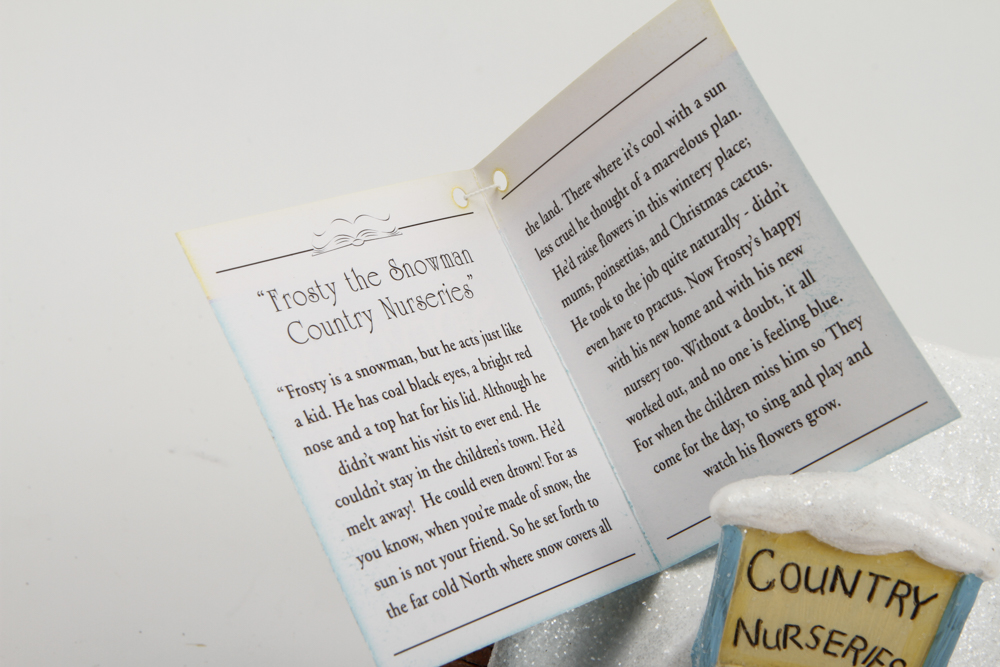 "Frosty the Snowman
Country Nurseries"
"Frosty is a snowman, but he acts just like
a kid. He has coal black eyes, a bright red
nose and a top hat for his lid. Although he
didn't want his visit to ever end. He
couldn't stay in the children's town. He'd
melt away! He could even drown! For as
you know, when you're made of snow, the
sun is not your friend. So he set forth to
the far cold North where snow covers all
the land. There where it's cool with a sun
less cruel he thought of a marvelous plan.
He'd raise flowers in this wintery place;
mums, poinsettias, and Christmas cactus.
He took to the job quite naturally - didn't
even have to practus. Now Frosty's happy
with his new home and with his new
nursery too. Without a doubt, it all
worked out, and no one is feeling blue.
For when the children miss him so They
come for the day, to sing and play and
watch his flowers grow.
COUNTRY
NURSERIES